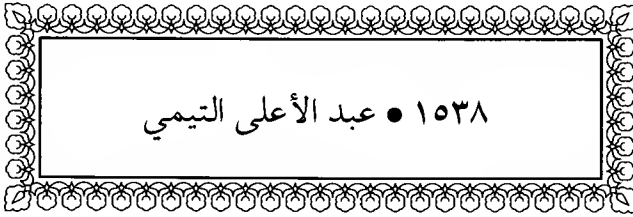 ١٥٣٨ ● عبد الأعلى التيمي